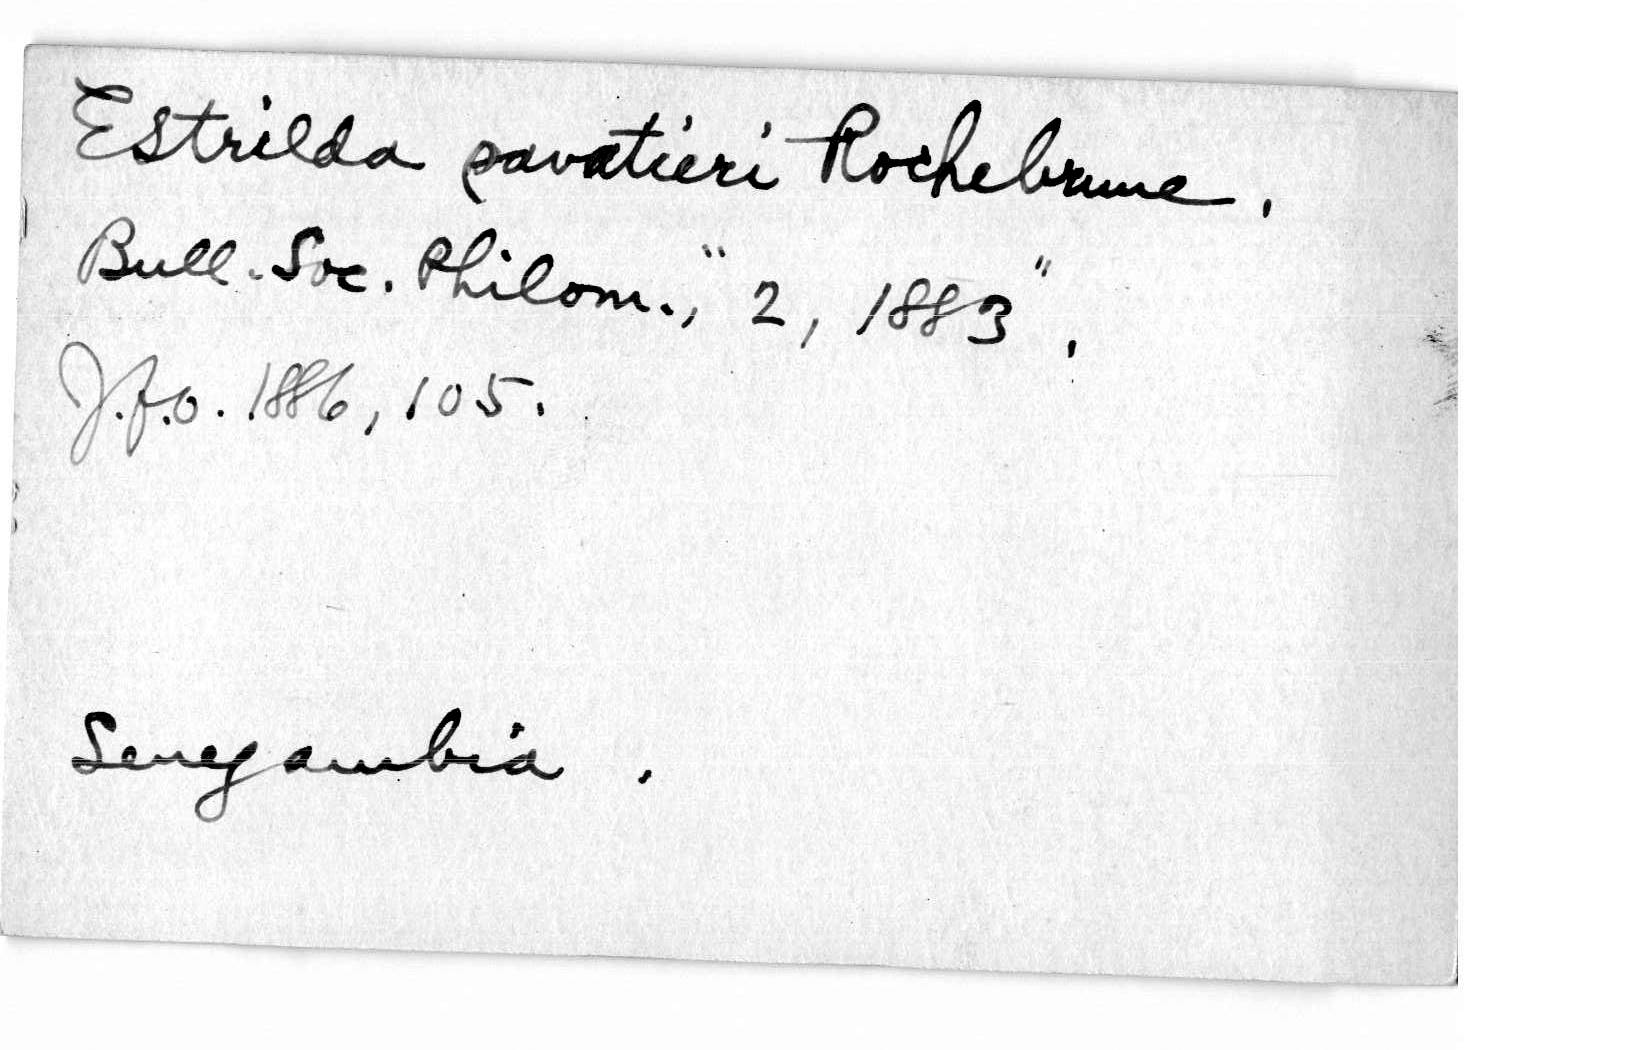 Estrilda savatieri Rochebrune,
Bull. Soc. Philom., "2, 1883",
J.f.O. 1886, 105.
Senegambia.